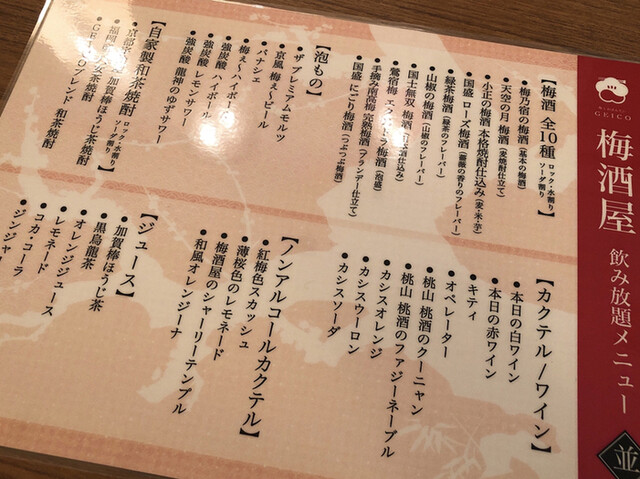 GEICO
梅酒屋
飲み放題メニュー
並
【梅酒 全10種 ロック・水割り ソーダ割り】
●梅乃宿の梅酒（基本の梅酒）
●天空の月 梅酒（麦焼酎仕立て）
●小正の梅酒 本格焼酎仕込み（麦・米・芋）
●国盛 ローズ梅酒（薔薇の香りのフレーバー）
●緑茶梅酒（緑茶のフレーバー）
●山椒の梅酒（山椒のフレーバー）
●国士無双 梅酒（日本酒仕込み）
●鶯宿梅 エクストラ梅酒（泡盛）
●手摘み南高梅 完熟梅酒（ブランデー仕立て）
●国盛 にごり梅酒（つぶつぶ梅酒）
【泡もの】
●ザ プレミアムモルツ
●京風 梅ぇ〜ビール
●パナシェ
●梅ぇ〜ハイボール
●強炭酸 ハイボール
●強炭酸 レモンサワー
●強炭酸 龍神のゆずサワー
【自家製和茶焼酎 ロック・水割り ソーダ割り】
焼酎
●加賀棒ほうじ茶焼酎
茶焼酎
ブレンド 和茶焼酎
【カクテル/ワイン】
●本日の白ワイン
●本日の赤ワイン
●キティ
●オペレーター
●桃山 桃酒のクーニャン
●桃山 桃酒のファジーネーブル
●カシスオレンジ
●カシスウーロン
●カシスソーダ
【ノンアルコールカクテル】
●紅梅色スカッシュ
●薄桜色のレモネード
●梅酒屋のシャーリーテンプル
●和風オレンジーナ
【ジュース】
●加賀棒ほうじ茶
●黒烏龍茶
●オレンジジュース
●レモネード
●コカ・コーラ
●ジンジャ